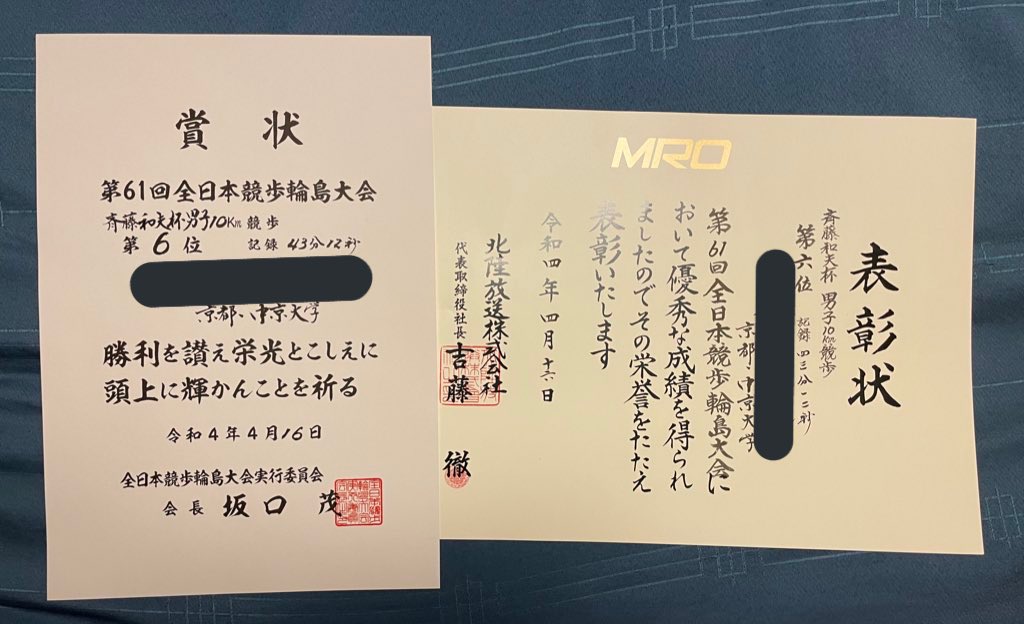 賞状
第61回全日本競歩輪島大会
斉藤和夫杯男子10Km競歩
第6位 記録 43分12秒
京都・中京大学
勝利を讃え栄光とこしえに
頭上に輝かんことを祈る
令和4年4月16日
全日本競歩輪島大会実行委員会
会長 坂口 茂
MRO
表彰状
斉藤和夫杯 男子10Km競歩
第六位 記録 四三分一二秒
京都・中京大学
第61回全日本競歩輪島大会に
おいて優秀な成績を得られ
ましたのでその栄誉をたたえ
表彰いたします
令和四年四月十六日
北陸放送株式会社
代表取締役社長 吉藤 徹